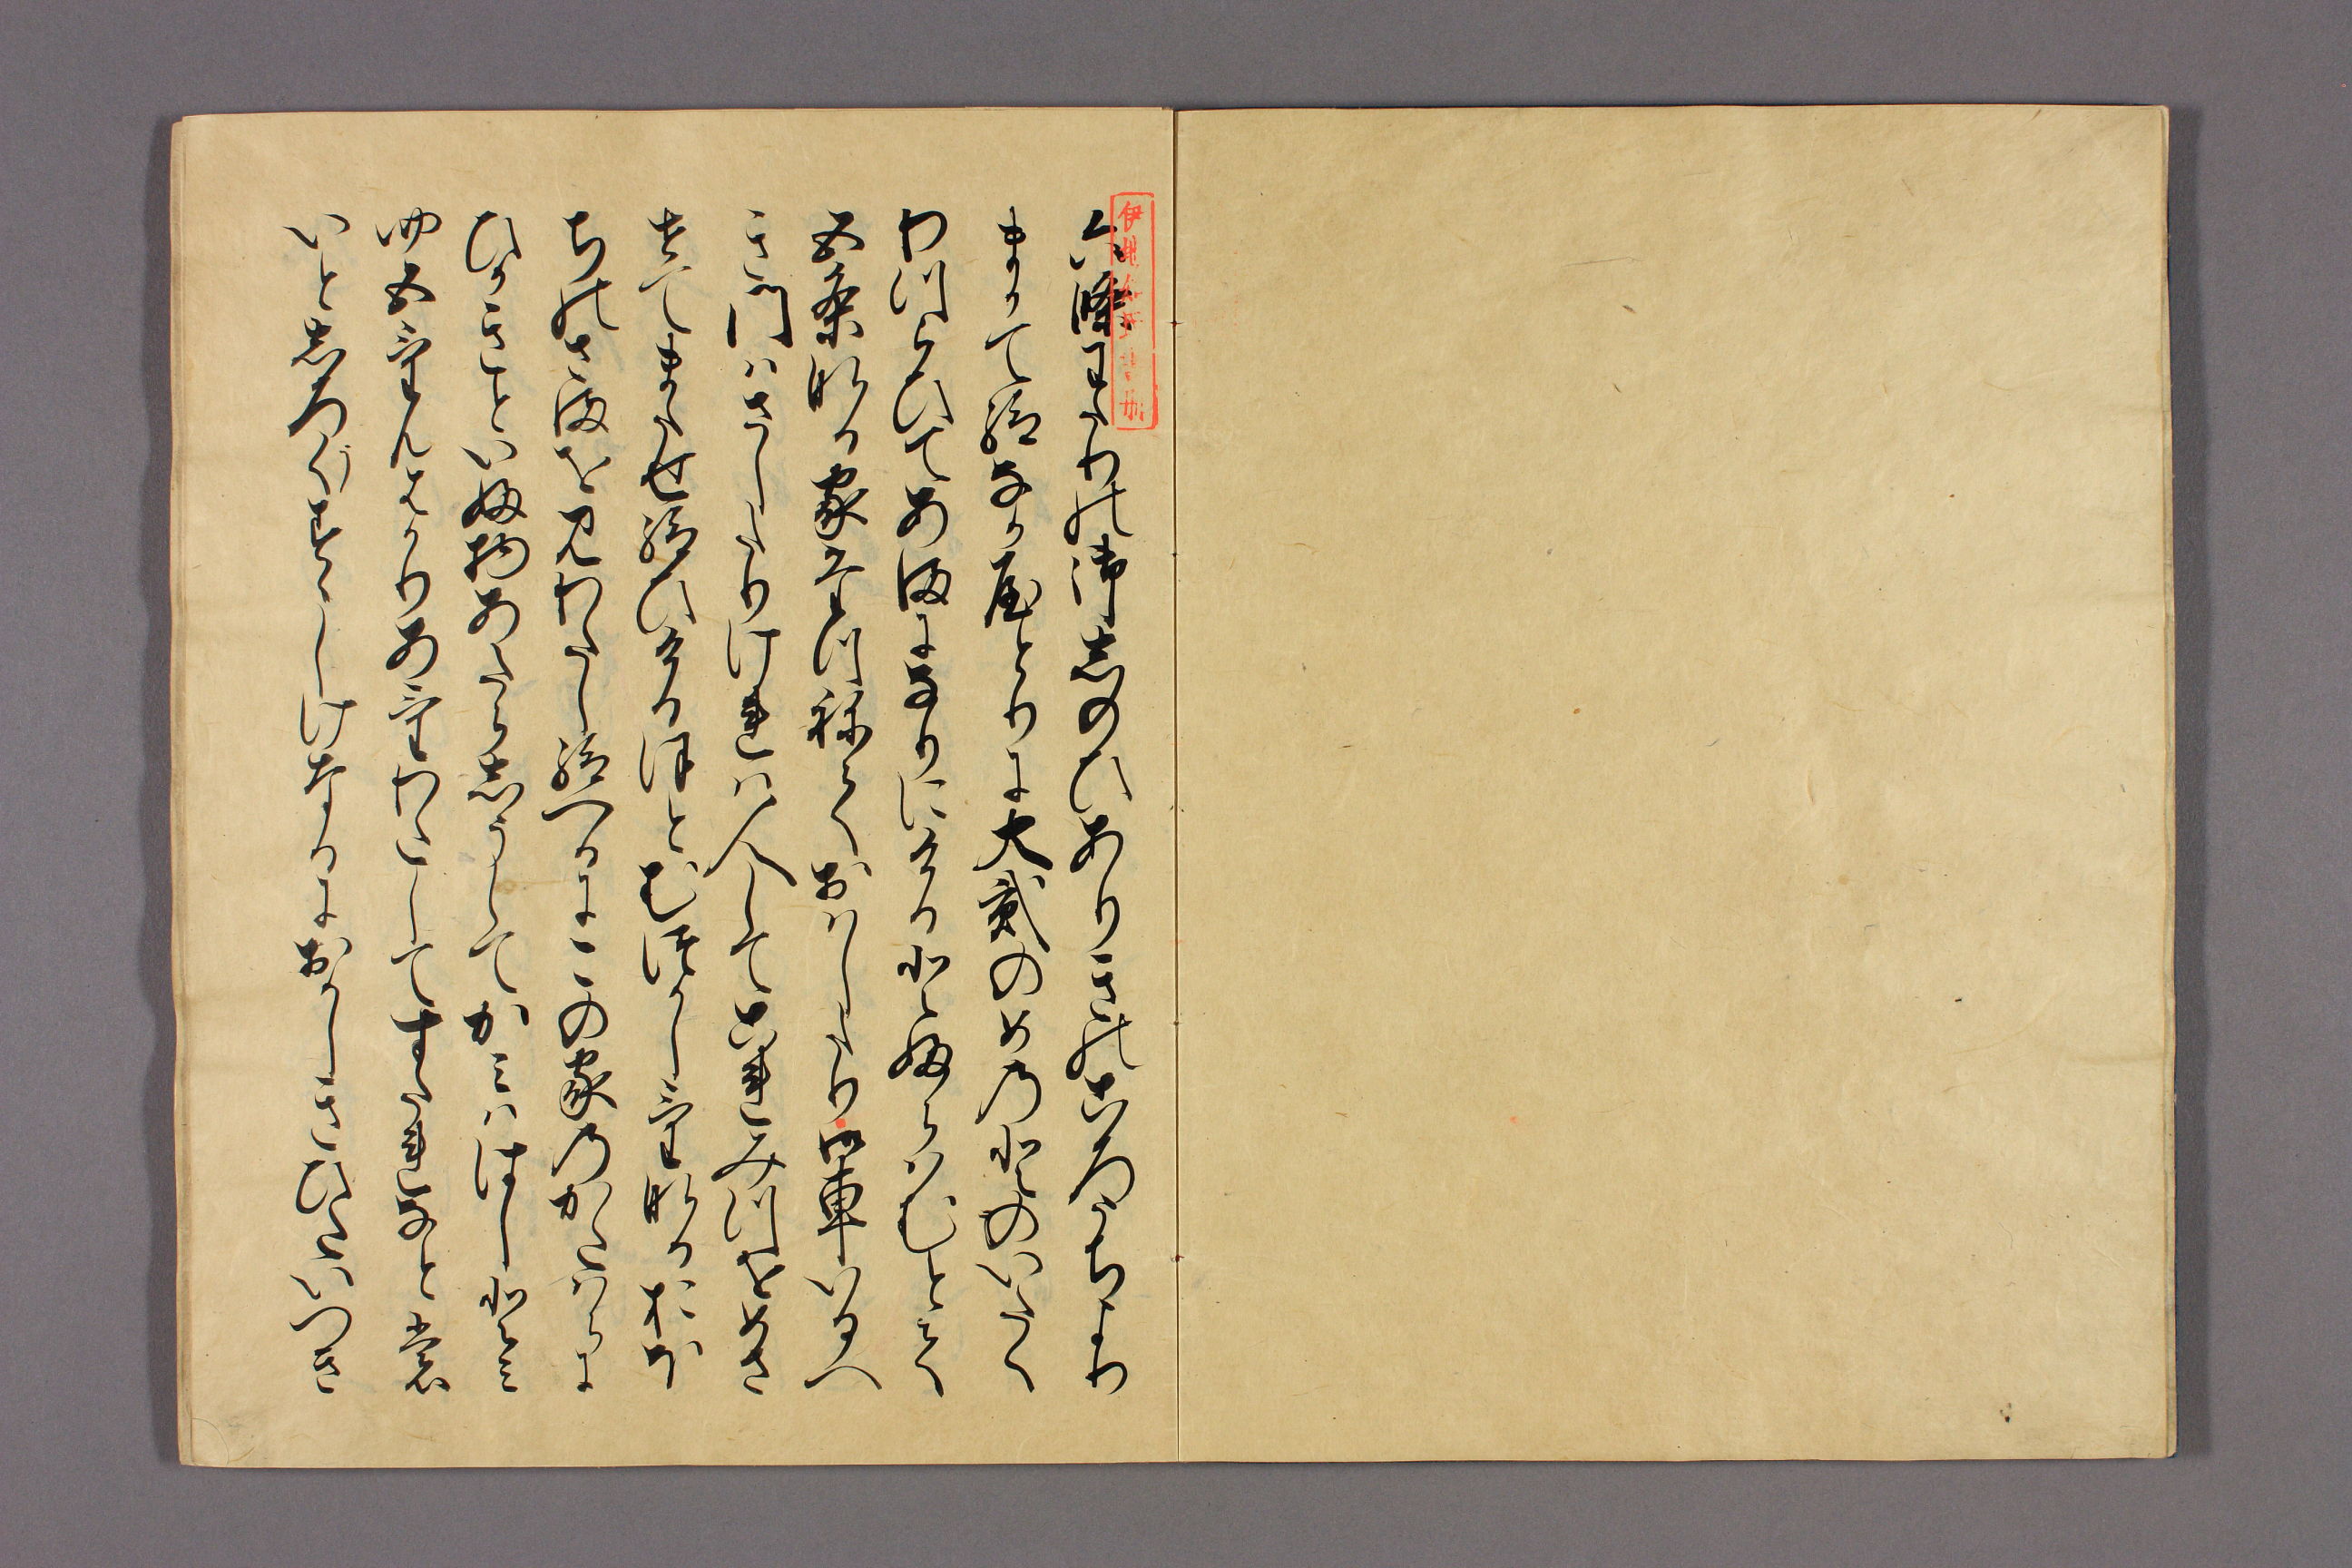 六条わたりの御しのひありきのころうちより
まかて給なかやとりに大弐のめのとのいたく
わつらひてあまになりにけるとふらはむとて
五条なる家たつねておはしたり御車いるへ
き門はさしたりけれは人してこれみつをめさ
せてまたせ給ひけるほとむつかしけなるおほ
ちのさまを見わたし給へるにこの家のかたはらに
ひかきといふ物あたらしうしてかみははしとみ
四五けんはかりあけわたしてすたれなとも
いとしろうすゝしけなるにおかしきひたいつき